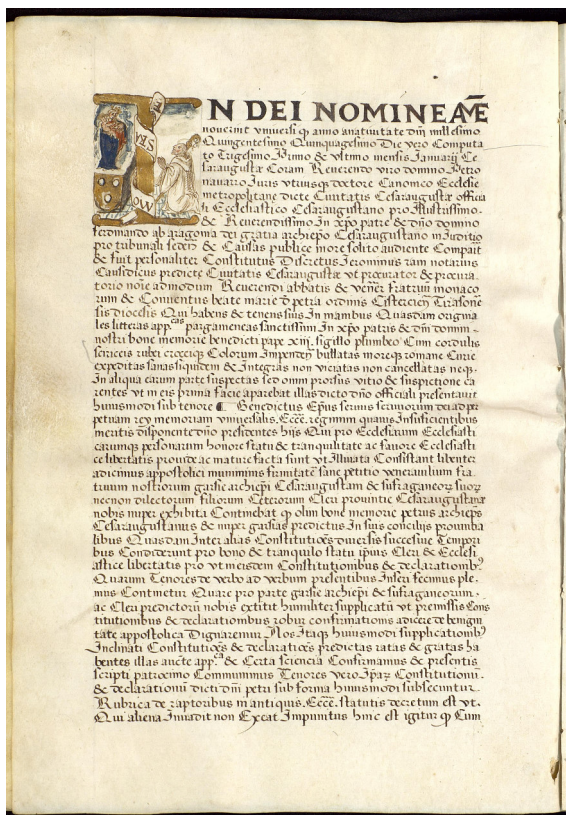 IN DEI NOMINE AMĒ
noverint vniversi q̄ anno anatiuitate dñi millesimo
Quingentesimo Quinquagesimo Die vero Computa
to Trigesimo Primo & vltimo mensis Januarij Ce
saraugustæ Coram Reverendo viro domino Petro
navarro Juris vtriusq̄ doctore Canonico Ecclesie
metropolitane dicte Ciuitatis Cesaraugustæ officia
li Ecclesiastico Cesaraugustano pro Illustrissimo.
& Reuerendissimo In xp̄o patre & dño domino
ferdinando ab aragonia dei gratia archiepō Cesaraugustano in Juditio
pro tribunali sedeñ & Causas publice more solito audiente Compait
& fuit personaliter Constitutus Discretus Jeronimus ram notarius
Causidicus predicte Ciuitatis Cesaraugustæ vt procurator & procura
torio noīe admodum Reuerendi abbatis & veneř fratrum monaco
rum & Conuentus beate marie d̄ petra ordinis Cistercieñ Tirasone
sis diocesis Qui habens & tenens suis In manibus Quasdam origina
les litteras app̄cas pargameneas sanctissimi In xp̄o patris & dñi domini
nostri bone memorie benedicti pape xiij. sigillo plumbeo Cum cordulis
sericeis rubei croceiq̄ Colorum Impendeñ bullatas moreq̄ romane Curie
expeditas sanas siquidem & Integras non viciatas non cancellatas neq̄.
In aliqua earum parte suspectas sed omni prorsus vitio & suspictione ca
rentes vt in eis prima facie aparebat illas dicto dño officiali presentauit
huiusmodi sub tenore ¶ Benedictus Epūs seruus seruorum dei ad per
petuam rey memoriam vniuersalis. Ecc̄e. regimini quamuis Insuficientibus
meritis disponente dño presidentes hijs Qui pro Ecclesiarum Ecclesiasti
carumque personarum honore statu & tranquilitate ac fauore Ecclesiasti
ce libertatis prouide ac mature facta sunt vt Illiuata Consistant libenter
adicimus appostolici muniminis firmitatē sane petitio venerabilium fra
truum nostrorum garsie archiepi Cesaraugustani & sufraganeorz suorz
necnon dilectorum filiorum Ceterorum Cleri prouintie Cesaraugustanæ
nobis nuper exhibita Continebat q̄ olim bone memorie petrus archiepūs
Cesaraugustanus & nuper garsias predictus In suis concilijs prouintia
libus Quasdam Inter alias Constitutioēs diuersis succesiue Tempori
bus Condiderunt pro bono & tranquilo statu ipsius Cleri & Ecclesi
astice libertatis pro vt in eisdem Constitutionibus & declarationibȝ
Quarum Tenores de verbo ad verbum presentibus Inseri fecimus ple.
nius Continetur Quare pro parte garsie archiepi & sufraganeorum.
ac Cleri predictorū nobis extitit humiliter supplicatū vt premissis Cons
titutionibus & declarationibus robur confirmationis adicere de benigni
tate appostolica Dignaremur Nos Itaq̄ huiusmodi supplicationibȝ
Inclinati Constitutioēs & declaratioēs predictas ratas & gratas ha
bentes illas aucte app̄ca & Certa sciencia Confirmamus & presentis
scripti patrocinio Communimus Tenores vero Ipaȝ Constitutionū.
& declarationū dicti dñi petri sub forma huiusmodi subsecuntur
Rubrica de raptoribus in antiquis. Ecc̄e. statutis decretum est vt.
Qui aliena Inuadit non Exeat Impunitus hinc est igitur q̄ Cum